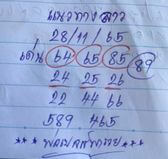 แนวทางลาว
28/11/65
เด่น 64 65 85 89
24 25 26
22 44 66
589 465